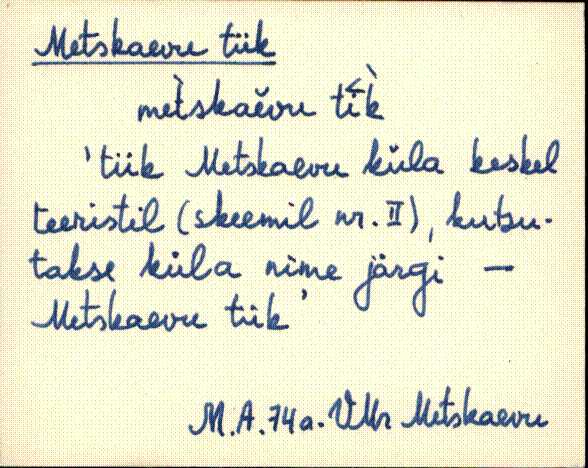 Metskaevu tiik
metskaĕvu tik
'tiik Metskaevu küla keskel
teeristil (skeemil nr. II), kutsu-
takse küla nime järgi —
Metskaevu tiik'
M.A. 74a. VMr Metskaevu